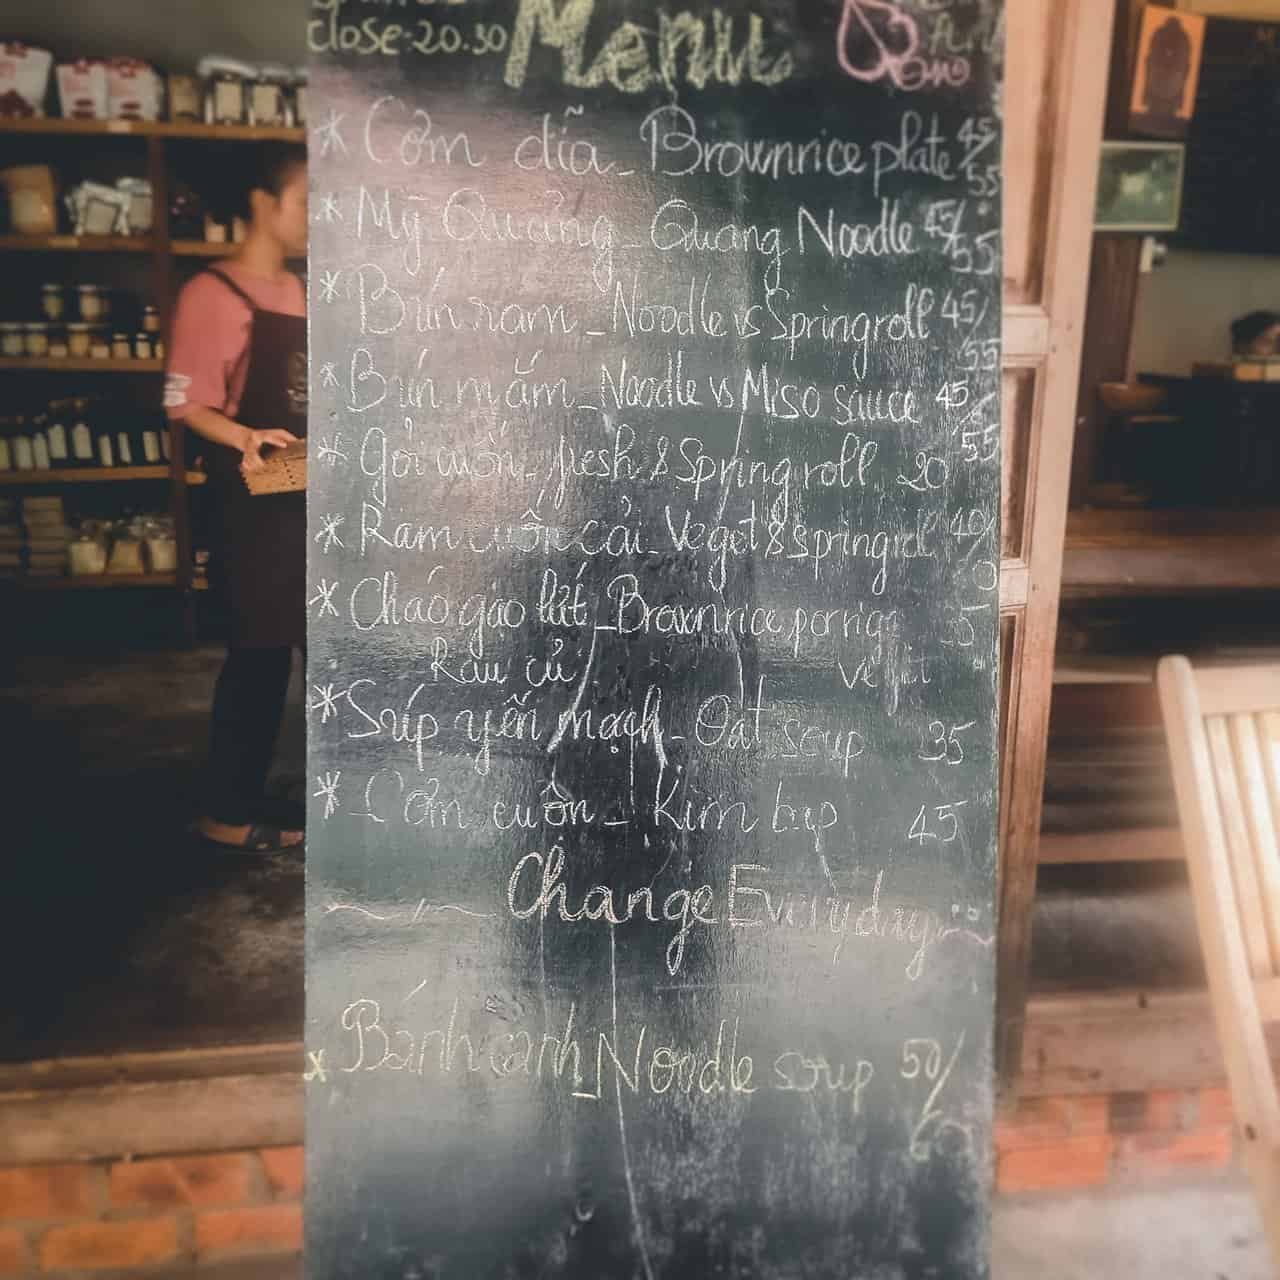 close-20.30 Menu
* Cơm dĩa - Brownrice plate 45/55
* Mỳ Quảng - Quang Noodle 45/55
* Bún ram - Noodle vs Springroll 45/55
* Bún mắm - Noodle vs Miso sauce 45/55
* Gỏi cuốn - fresh & Spring roll 20
* Ram cuốn cải - Veget & springroll 40/
* Cháo gạo lứt - Brownrice porrige 35
Rau củ
* Súp yến mạch - Oat soup 35
* Cơm cuộn - Kim bap 45
Change Everyday
x Bánh canh - Noodle soup 50/60